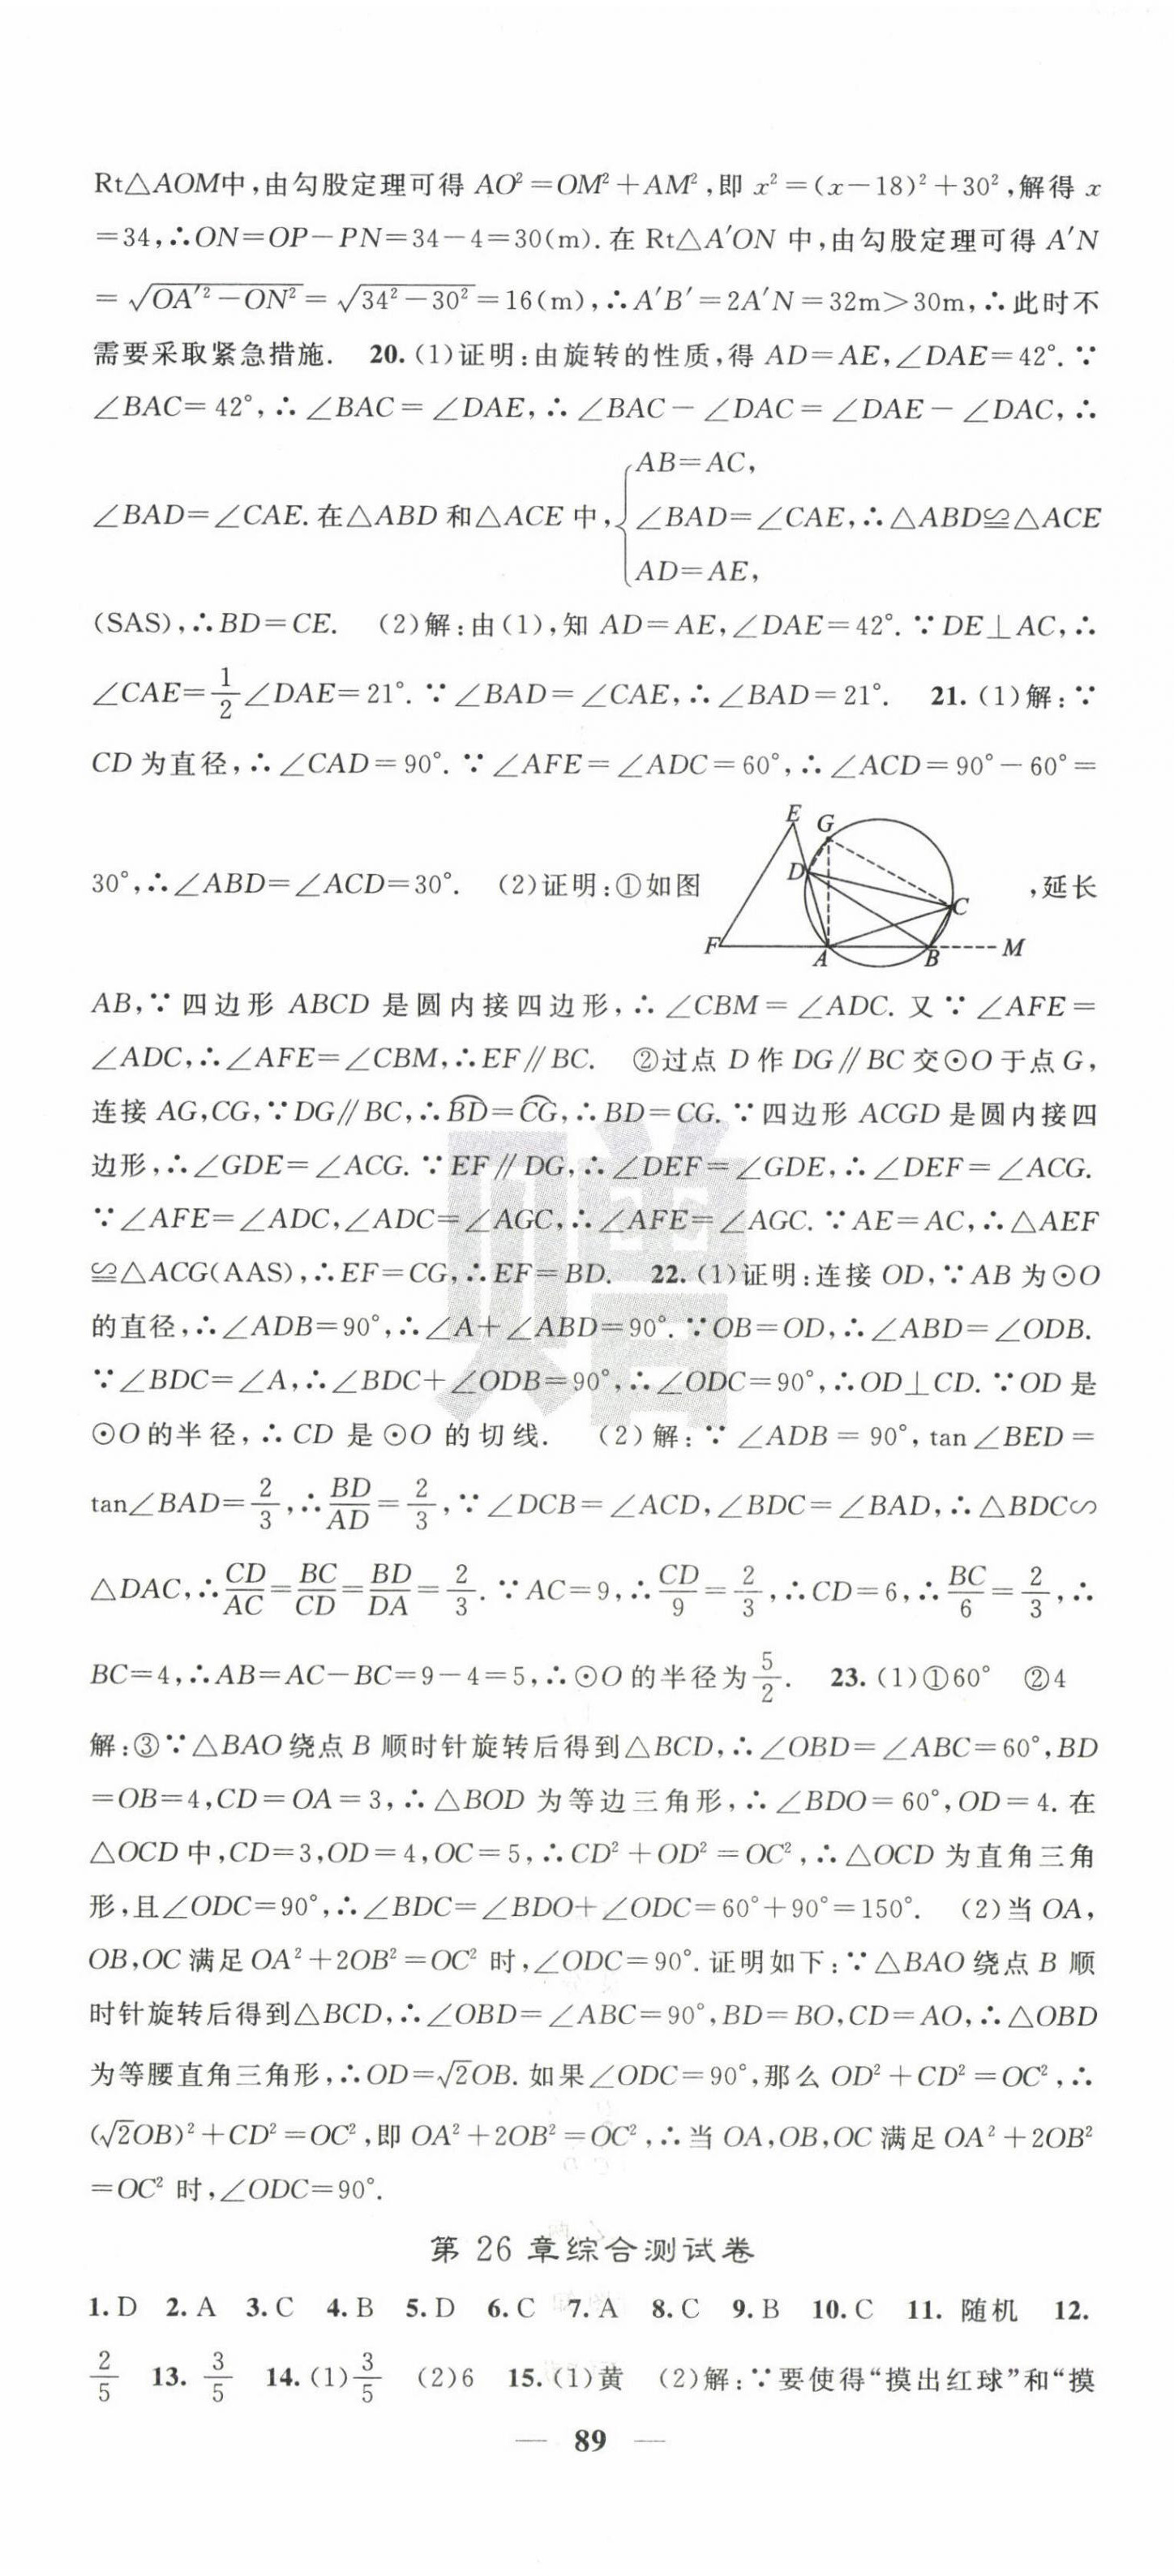 Rt△AOM中,由勾股定理可得 AO²=OM²+AM²,即 x²=(x-18)²+30²,解得 x
=34,∴ON=OP-PN=34-4=30(m).在 Rt△A′ON 中,由勾股定理可得 A′N
=√(OA′²-ON²)=√(34²-30²)=16(m),∴A′B′=2A′N=32m>30m,∴此时不
需要采取紧急措施. 20.(1)证明:由旋转的性质,得 AD=AE,∠DAE=42°.∵
∠BAC=42°,∴∠BAC=∠DAE,∴∠BAC-∠DAC=∠DAE-∠DAC,∴
AB=AC,
∠BAD=∠CAE.在△ABD 和△ACE 中,{∠BAD=∠CAE,∴△ABD≌△ACE
AD=AE,
(SAS),∴BD=CE. (2)解:由(1),知 AD=AE,∠DAE=42°.∵DE⊥AC,∴
∠CAE=1/2∠DAE=21°.∵∠BAD=∠CAE,∴∠BAD=21°. 21.(1)解:∵
CD 为直径,∴∠CAD=90°.∵∠AFE=∠ADC=60°,∴∠ACD=90°-60°=
30°,∴∠ABD=∠ACD=30°. (2)证明:①如图 ,延长
E
G
D
C
F
A
B
M
AB,∵四边形 ABCD 是圆内接四边形,∴∠CBM=∠ADC.又∵∠AFE=
∠ADC,∴∠AFE=∠CBM,∴EF∥BC. ②过点 D 作 DG∥BC 交⊙O 于点 G,
连接 AG,CG,∵DG∥BC,∴B͡D=C͡G,∴BD=CG.∵四边形 ACGD 是圆内接四
边形,∴∠GDE=∠ACG.∵EF∥DG,∴∠DEF=∠GDE,∴∠DEF=∠ACG.
∵∠AFE=∠ADC,∠ADC=∠AGC,∴∠AFE=∠AGC.∵AE=AC,∴△AEF
≌△ACG(AAS),∴EF=CG,∴EF=BD. 22.(1)证明:连接 OD,∵AB 为⊙O
的直径,∴∠ADB=90°,∴∠A+∠ABD=90°.∵OB=OD,∴∠ABD=∠ODB.
∵∠BDC=∠A,∴∠BDC+∠ODB=90°,∴∠ODC=90°,∴OD⊥CD.∵OD 是
⊙O 的半径,∴CD 是⊙O 的切线. (2)解:∵∠ADB=90°,tan∠BED=
tan∠BAD=2/3,∴BD/AD=2/3,∵∠DCB=∠ACD,∠BDC=∠BAD,∴△BDC∽
△DAC,∴CD/AC=BC/CD=BD/DA=2/3.∵AC=9,∴CD/9=2/3,∴CD=6,∴BC/6=2/3,∴
BC=4,∴AB=AC-BC=9-4=5,∴⊙O 的半径为5/2. 23.(1)①60° ②4
解:③∵△BAO 绕点 B 顺时针旋转后得到△BCD,∴∠OBD=∠ABC=60°,BD
=OB=4,CD=OA=3,∴△BOD 为等边三角形,∴∠BDO=60°,OD=4.在
△OCD 中,CD=3,OD=4,OC=5,∴CD²+OD²=OC²,∴△OCD 为直角三角
形,且∠ODC=90°,∴∠BDC=∠BDO+∠ODC=60°+90°=150°. (2)当 OA,
OB,OC 满足 OA²+2OB²=OC² 时,∠ODC=90°.证明如下:∵△BAO 绕点 B 顺
时针旋转后得到△BCD,∴∠OBD=∠ABC=90°,BD=BO,CD=AO,∴△OBD
为等腰直角三角形,∴OD=√2OB.如果∠ODC=90°,那么 OD²+CD²=OC²,∴
(√2OB)²+CD²=OC²,即 OA²+2OB²=OC²,∴当 OA,OB,OC 满足 OA²+2OB²
=OC² 时,∠ODC=90°.
第 26 章综合测试卷
1.D 2.A 3.C 4.B 5.D 6.C 7.A 8.C 9.B 10.C 11.随机 12.
2/5 13.3/5 14.(1)3/5 (2)6 15.(1)黄 (2)解:∵要使得“摸出红球”和“摸
— 89 —
赠